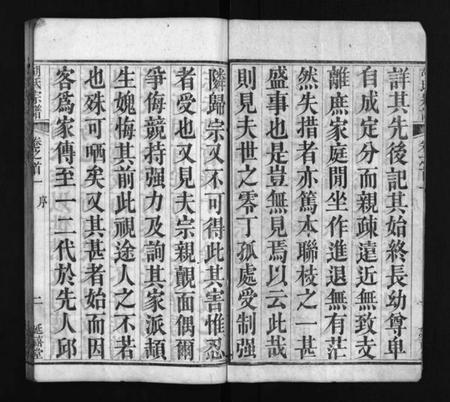 詳其先後記其始終長幼尊卑
自成定分而親疎遠近無致支
離庶家庭閒坐作進退無有茫
然失措者亦篤本聯枝之一甚
盛事也是豈無見焉以云此哉
則見夫世之零丁孤處受制强
隣歸宗又不可得此其害惟忍
者受也又見夫宗親覿面偶爾
爭侮競持强力及詢其家派頡
生媿悔其前此視途人之不若
也殊可哂矣又其甚者始而因
客爲家傳至一二代於先人邱
胡氏宗譜 卷之首 序 二 延禧堂